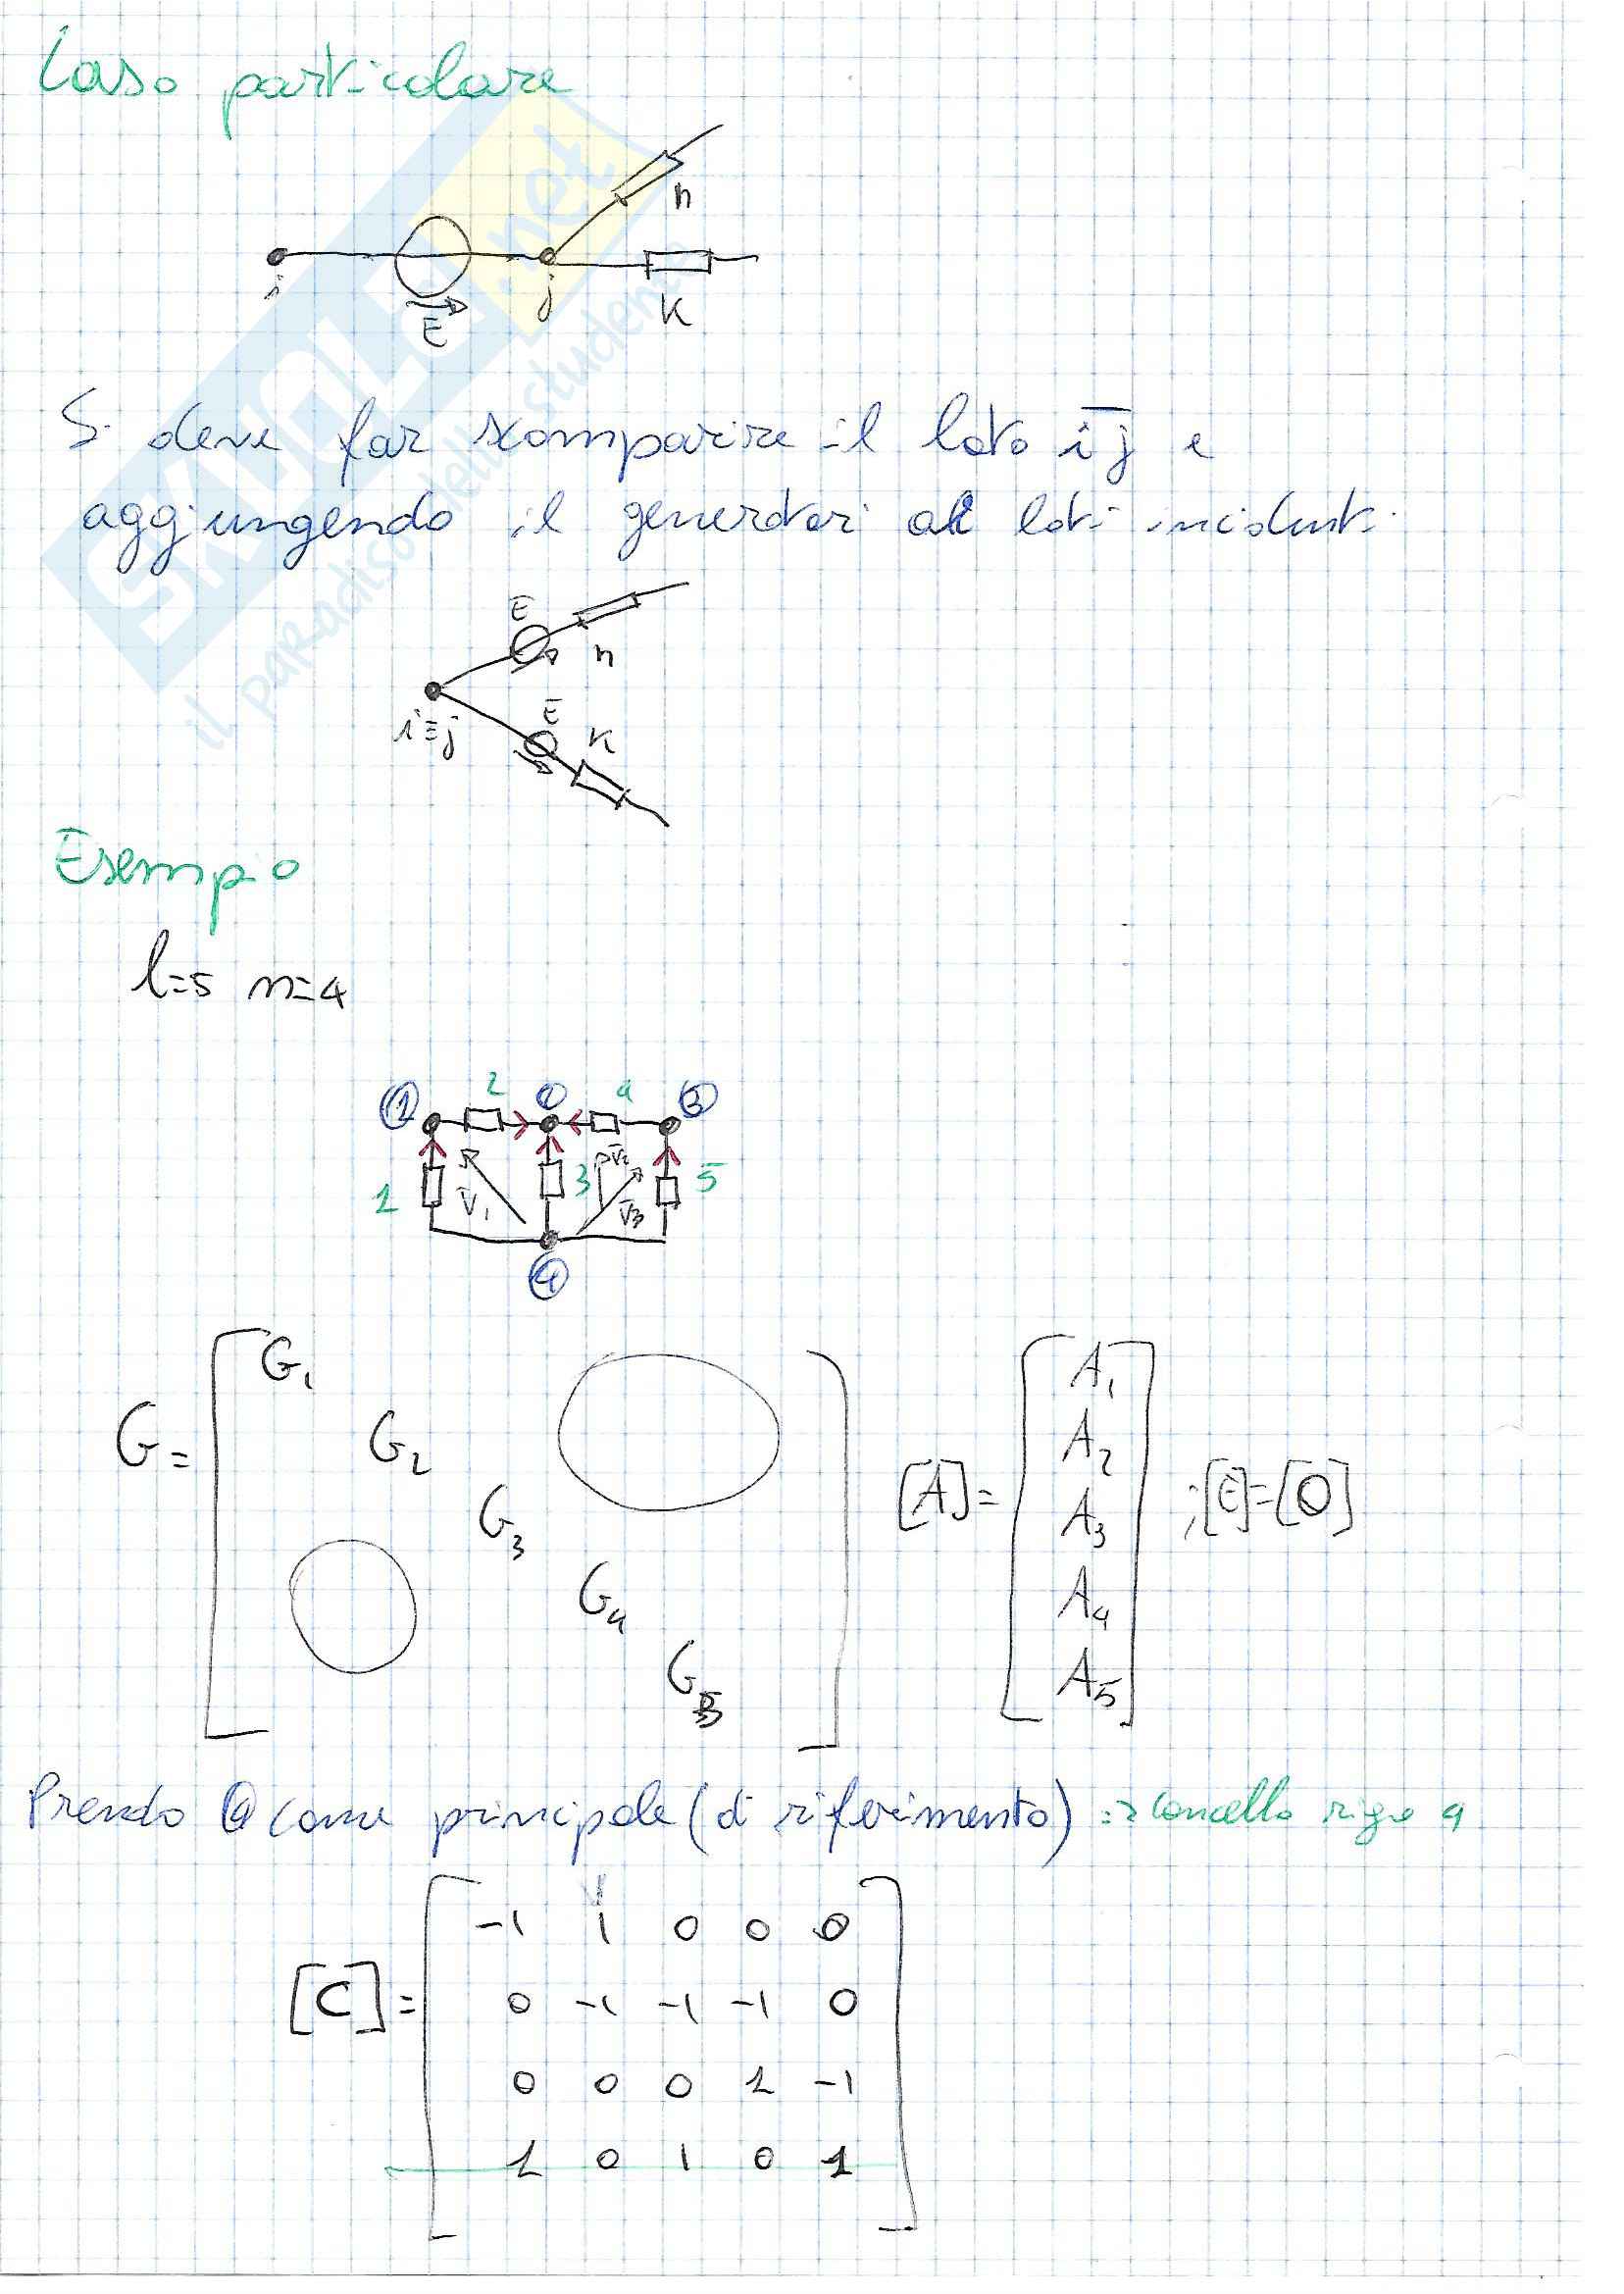 Caso particolare
n
i
j
E
K
Si deve far scomparire il lato ij e
aggiungendo il generatori ai lati incidenti
E
n
i≡j
E
K
Esempio
l=5 n=4
1 2 2 4 3
1 V1 3 V2 V3 5
4
G= G1 G2 G3 G4 G5
[A]= A1 A2 A3 A4 A5 ; [E]=[0]
Prendo 4 come principale (di riferimento) => cancello riga 4
[C]=
-1 1 0 0 0
0 -1 -1 -1 0
0 0 0 1 -1
1 0 1 0 1
SKUOLA.net
il paradiso dello studente